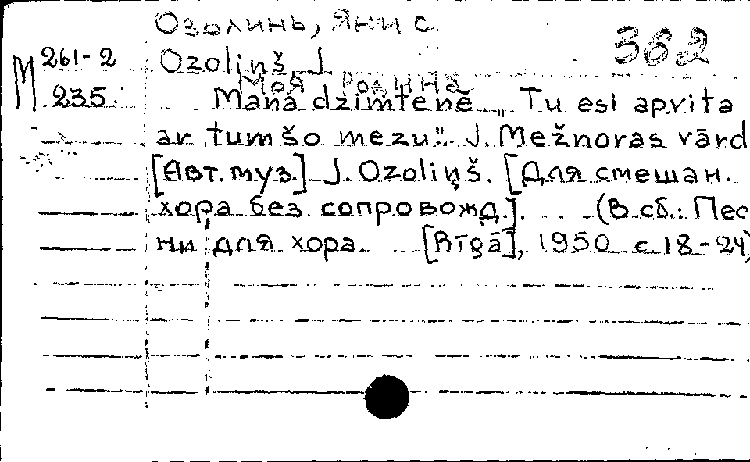 Озолинь, Янис
362
М 261-2
235
Ozoliņš J.
Моя Родина
Mana dzimtenē „Tu esi apvīta
ar tumšo mežu". J. Mežnoras vārd
[Авт. муз.] J. Ozoliņš. [Для смешан.
хора без сопровожд.]. (В сб.: Пес
ни для хора. [Rīgā], 1950 с 18-24)